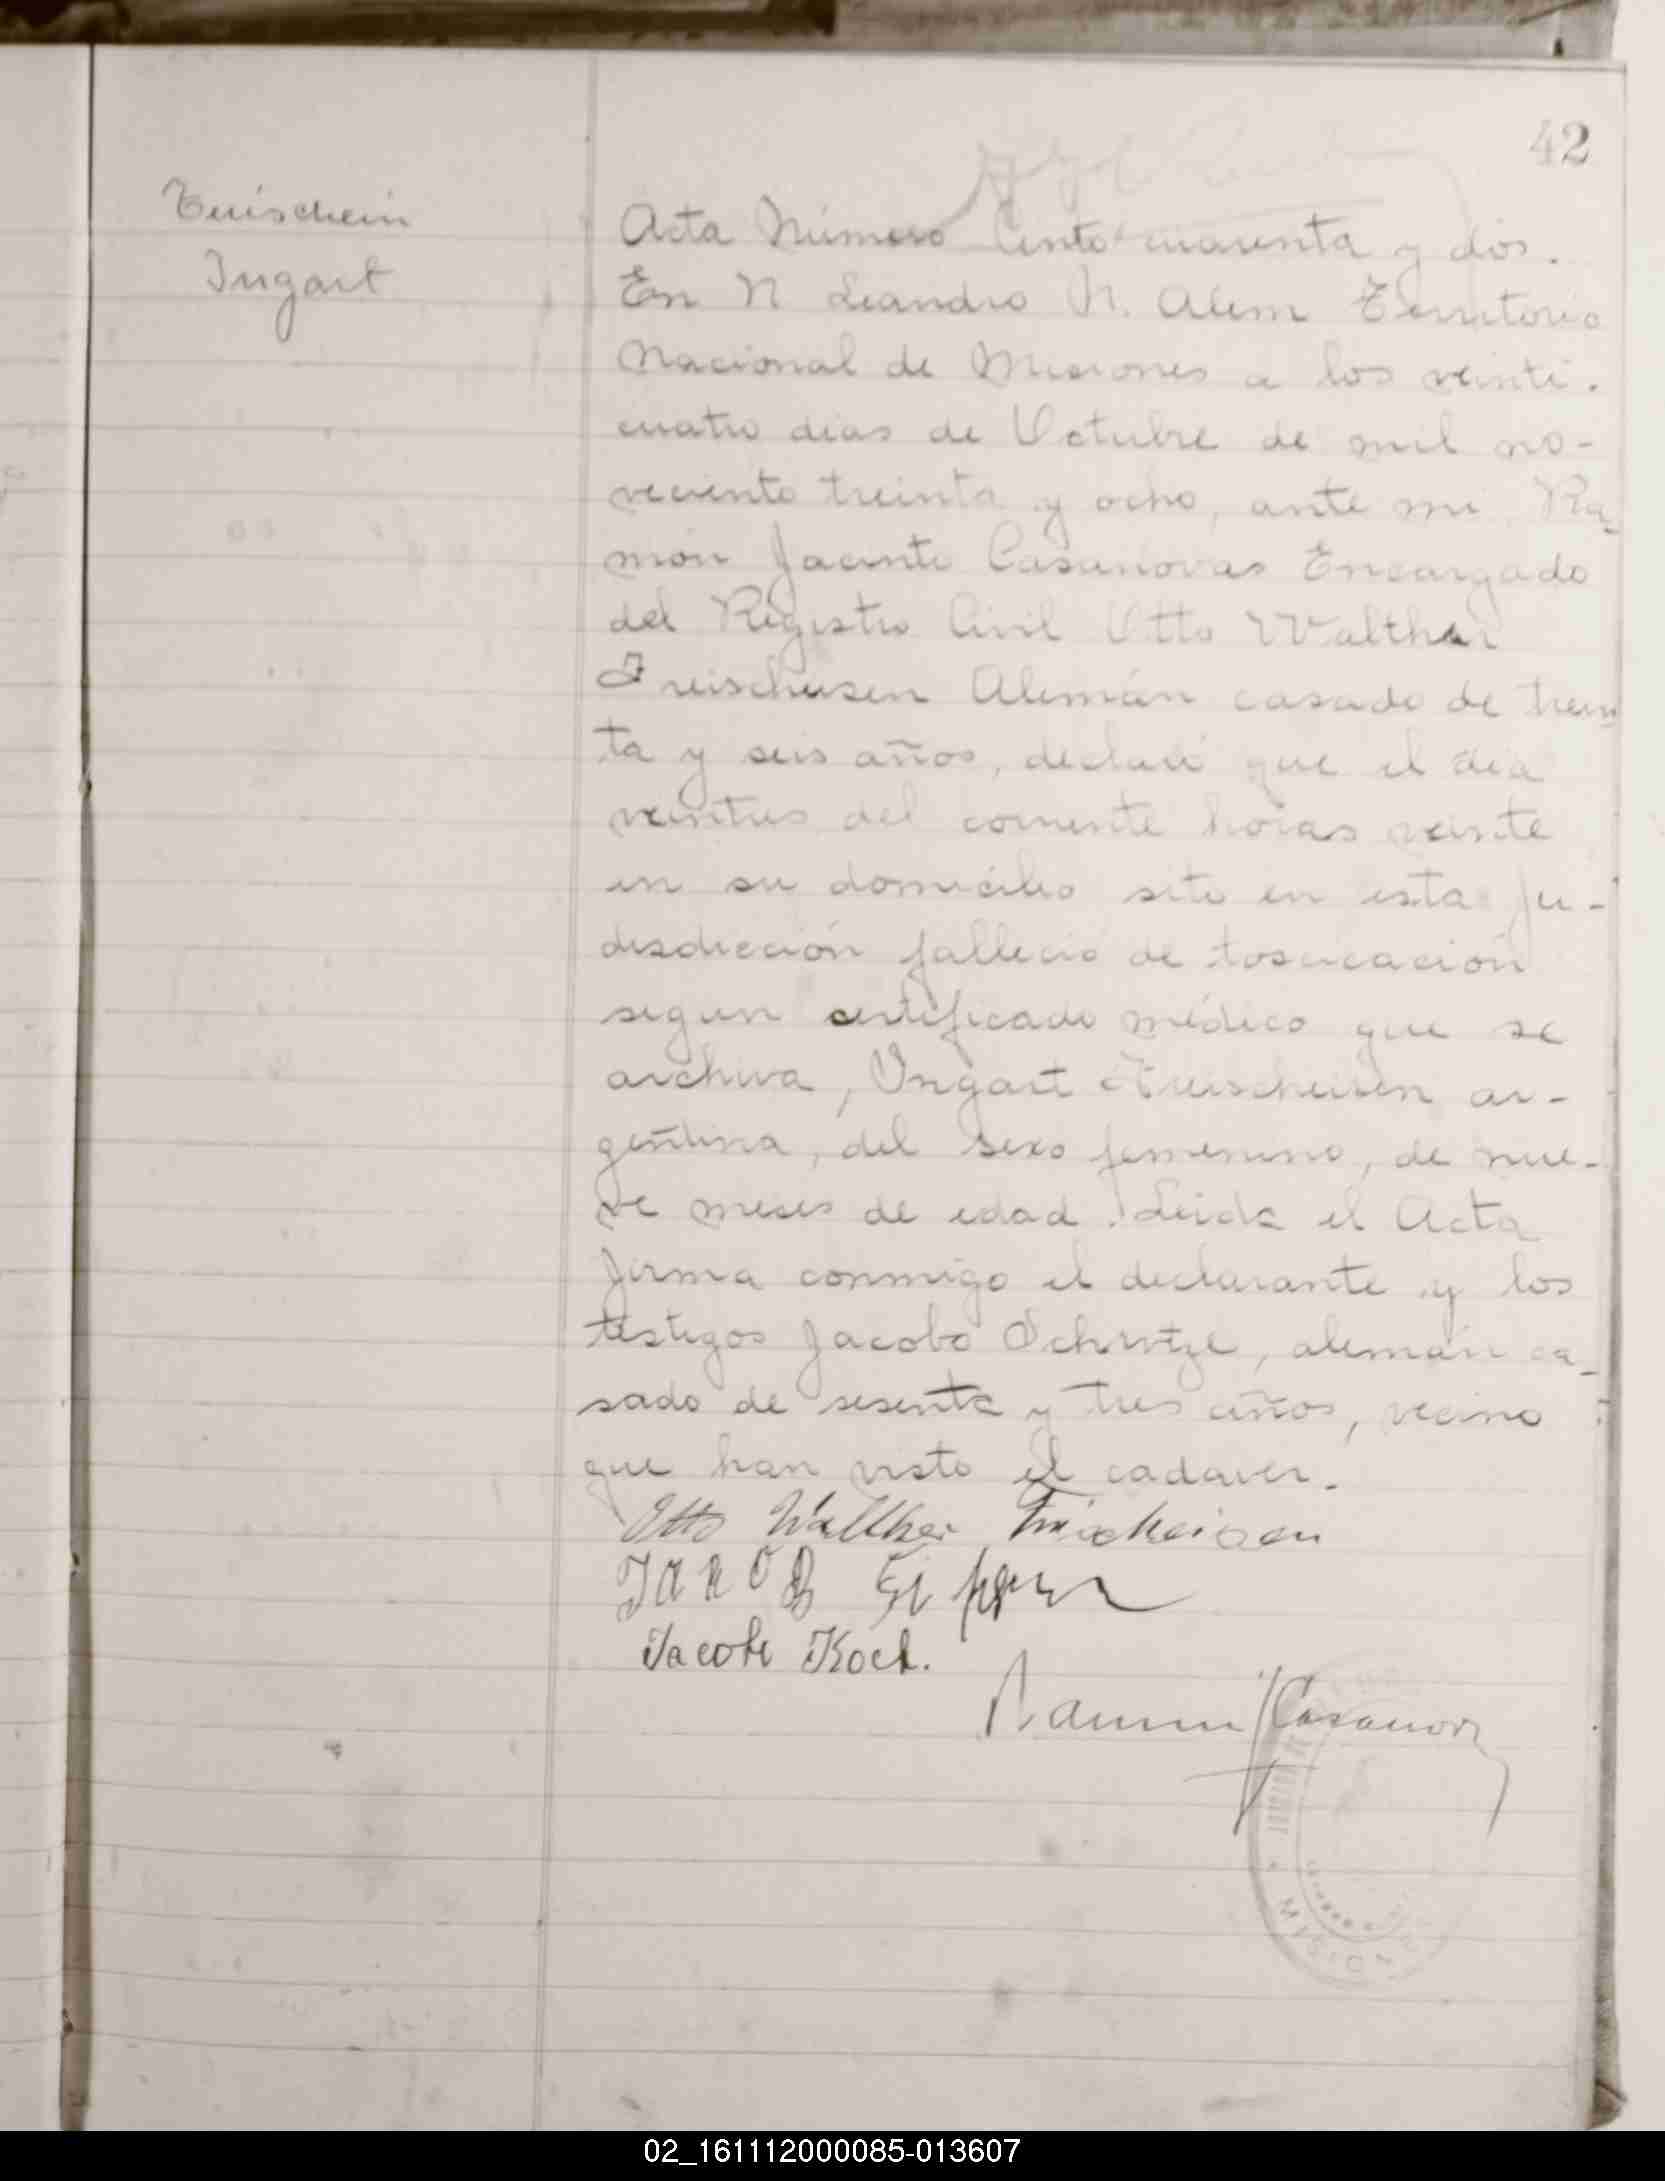 42
Treischein
Ingart
Acta Número Cento cuarenta y dos.
En N Leandro N. Alem Territorio
Nacional de Misiones a los veinti.
cuatro dias de Octubre de mil no-
veciento treinta y ocho, ante mi Ra-
món Jacinto Casanovas Encargado
del Registro Civil Otto Walther
Treischeisen Alemán casado de trein
ta y seis años, declaró que el dia
veintres del corriente horas veinte
en su domicilio sito en esta Ju-
disdicción falleció de toxicación
segun certificado médico que se
archiva, Ingart Treischeisen ar-
gentina, del sexo femenino, de nue-
ve meses de edad. Leida el Acta
firma conmigo el declarante y los
testigos Jacobo, alemán ca-
sado de sesenta y tres años, vecino
que han visto el cadaver.
Otto Walther Treischeisen
JAKOB
Jacob Koch.
Ramon J Casanova
MISIONES
02_161112000085-013607